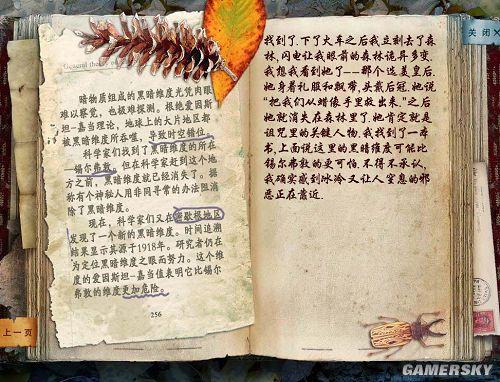 关闭
General theory o
暗物质组成的黑暗维度光凭肉眼
难以察觉，也极难探测。根绝爱因斯
坦-嘉当理论，地球上的大片地区都
被黑暗维度所吞噬，导致时空错位。
科学家们找到了黑暗维度的所在
—锡尔弗敦。但在科学家赶到这个地
方之前，黑暗维度就已经消失了。据
称有个神秘人用非同寻常的办法阻消
除了黑暗维度。
现在，科学家们又在密歇根地区
发现了一个新的黑暗维度。时间追溯
结果显示其源于1918年。研究者仍在
为定位黑暗维度之眼而努力。这个维
度的爱因斯坦-嘉当值表明它比锡尔
弗敦的维度更加危险。
256
上一页
找到了.下了火车之后我立刻去了森
林,闪电让我眼前的森林诡异多变.
我想我看到她了——那个选美皇后.
她身着礼服和飘带,头戴后冠.她说
“把我们从蜡像手里救出来.”之后
她就消失在森林里了.她肯定就是
诅咒里的关键人物.我找到了一本
书,上面说这里的黑暗维度可能比
锡尔弗敦的更可怕.不得不承认,
我确实感到冰冷又让人窒息的邪
恶正在靠近.
GAMERSKY